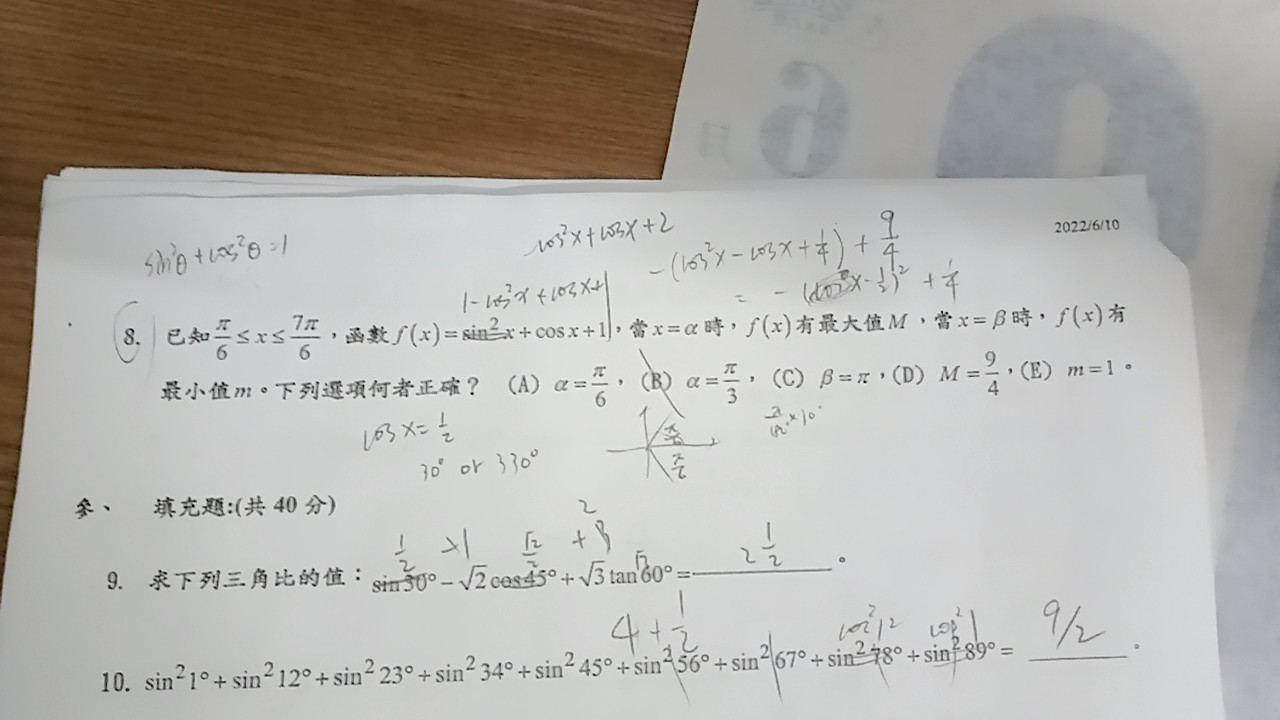 6
月
2022/6/10
cos²x+cosx+2
sin²θ+cos²θ=1
-(cos²x-cosx+1/4)+9/4
1-cos²x+cosx+1
8. 已知 π/6≤x≤7π/6,函數 f(x)=sin²x+cosx+1,當 x=α 時,f(x)有最大值M,當 x=β 時,f(x)有
最小值m。下列選項何者正確? (A) α=π/6,(B) α=π/3,(C) β=π,(D) M=9/4,(E) m=1。
cosx=1/2
30° or 330°
參、 填充題:(共 40 分)
9. 求下列三角比的值:sin30°-√2cos45°+√3tan60°= 2 1/2 。
4+1/2
cos²12
10. sin²1°+sin²12°+sin²23°+sin²34°+sin²45°+sin²56°+sin²67°+sin²78°+sin²89°= 9/2 。